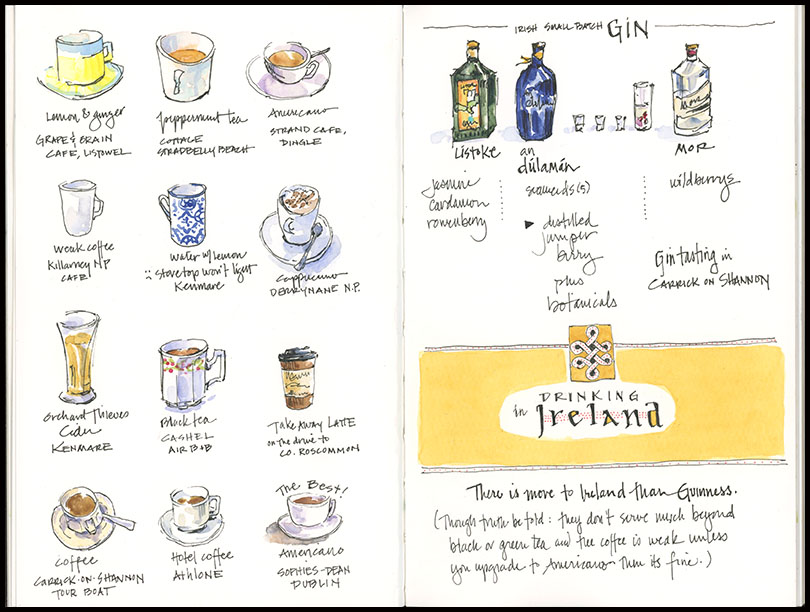 Lemon & ginger
GRAPE & GRAIN
CAFE, LISTOWEL
peppermint tea
COTTAGE
STRADBELLY BEACH
Americano
STRAND CAFE,
DINGLE
weak coffee
Killarney NP
CAFE
water w/ lemon
stovetop won't light
Kenmare
Cappuccino
DERRYNANE N.P.
Orchard Thieves
Cider
KENMARE
Black tea
CASHEL
AIR B+B
TAKE AWAY LATTE
on the drive to
CO. ROSCOMMON
COFFEE
CARRICK-ON-SHANNON
TOUR BOAT
Hotel coffee
AthLONE
The Best!
Americano
SOPHIES-DEAN
DUBLIN
IRISH SMALL BATCH GIN
Listoke
an
dúlamán
MOR
jasmine
cardamon
rowenberry
seaweeds (5)
wildberrys
distilled
juniper
berry
plus
botanicals
Gin tasting in
CARRICK ON SHANNON
DRINKING
in Ireland
There is more to Ireland than Guinness.
(Though truth be told: they don't serve much beyond
black or green tea and the coffee is weak unless
you upgrade to Americano. Then its fine.)